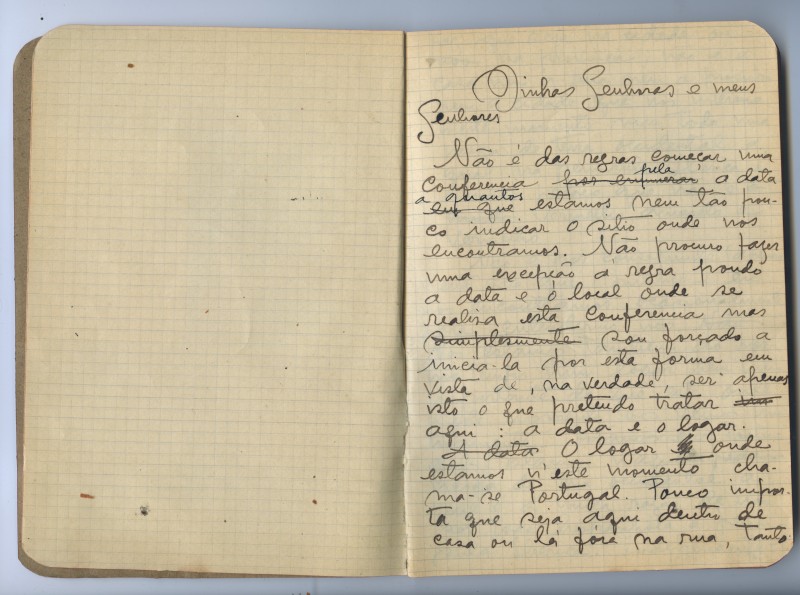 Minhas Senhoras e meus
Senhores
Não é das regras começar uma
Conferencia por enumerar pela a data
em que a quantos estamos nem tão pou-
co indicar o sitio onde nos
encontramos. Não procuro fazer
uma excepção á regra pondo
a data e o local onde se
realisa esta Conferencia mas
simplesmente sou forçado a
inicia-la por esta forma em
vista de, na verdade, ser apenas
isto o que pretendo tratar
aqui: a data e o logar.
A data O logar onde
estamos n'este momento cha-
ma-se Portugal. Pouco impor-
ta que seja aqui dentro de
casa ou lá fóra na rua, tanto